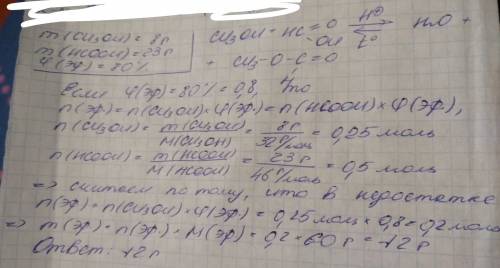 m(CH₃OH) = 8г
m(HCOOH) = 23г
φ(эф) = 80%
CH₃OH + HC=O -OH H⊕ ⇌ t° H₂O +
+ CH₃-O-C=O
H
Если φ(эф) = 80% = 0,8, то
n(эф) = n(CH₃OH) × φ(эф) = n(HCOOH) × φ(эф),
n(CH₃OH) = m(CH₃OH)/M(CH₃OH) = 8г/32г/моль = 0,25 моль
n(HCOOH) = m(HCOOH)/M(HCOOH) = 23г/46г/моль = 0,5 моль
=> считаем по тому, что в недостатке
n(эф) = n(CH₃OH) × φ(эф) = 0,25 моль × 0,8 = 0,2 моль
=> m(эф) = n(эф) × M(эф) = 0,2 × 60 г = 12 г
Ответ: 12г